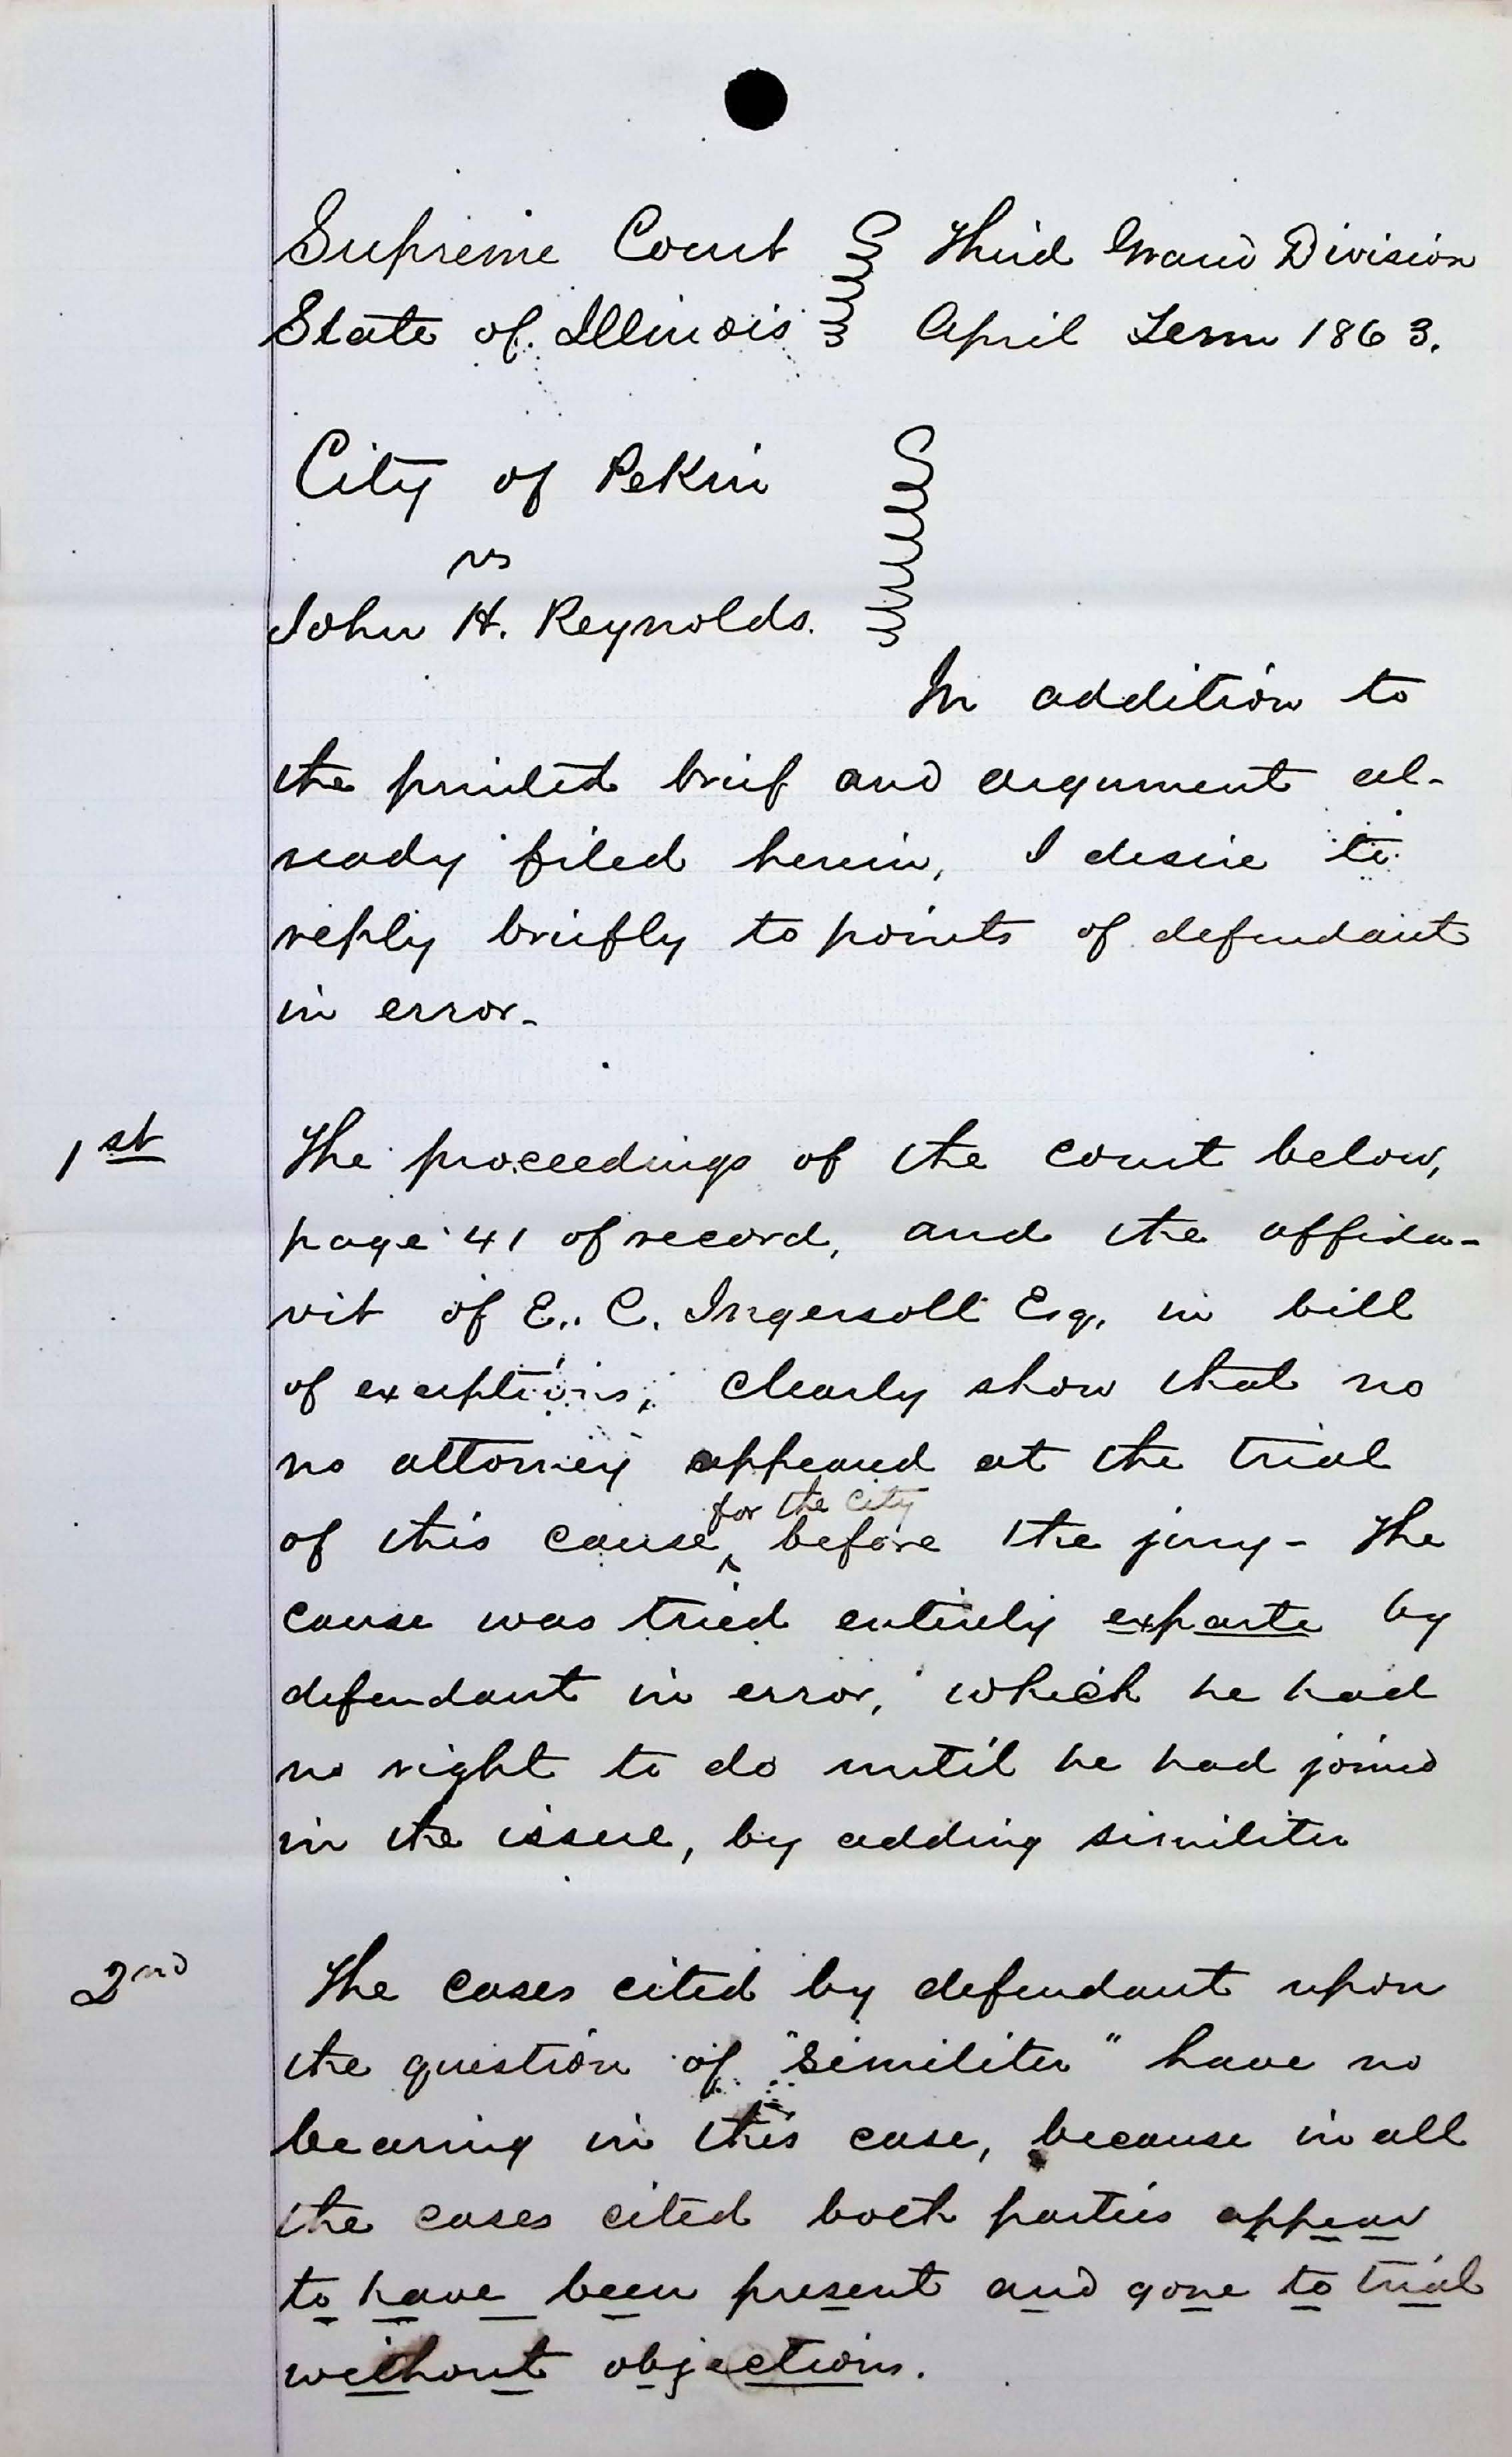 Supreme Court Third Grand Division
State of Illinois April Term 1863.
City of Pekin
vs
John H. Reynolds.
In addition to
the printed brief and argument al-
ready filed herein, I desire to
reply briefly to points of defendant
in error-
1st The proceedings of the court below,
page 41 of record, and the affida-
vit of E. C. Ingersoll Esq. in bill
of exceptions, clearly show that no
no attorney appeared at the trial
for the city
of this cause, before the jury- The
cause was tried entirely exparte by
defendant in error, which he had
no right to do until he had joined
in the issue, by adding similiter
2nd The cases cited by defendant upon
the question of "similiter" have no
bearing in this case, because in all
the cases cited both parties appear
to have been present and gone to trial
without objections.